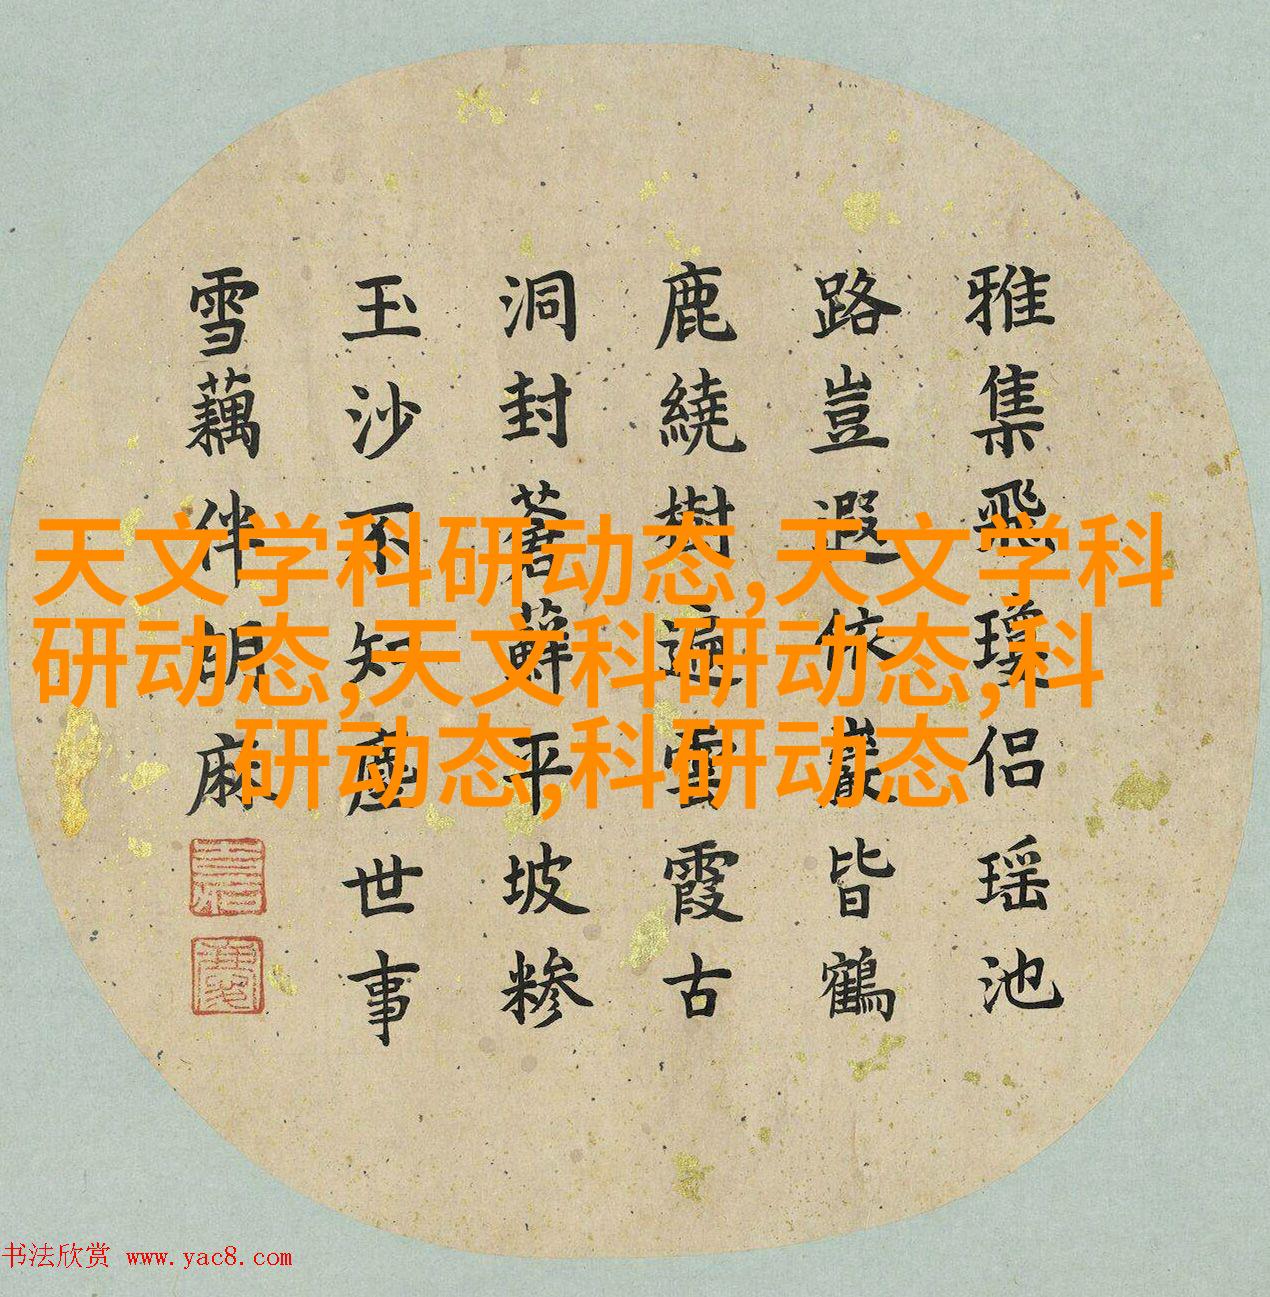 雅集飛瓊侶瑶池
路豈遐依巖皆鶴
鹿繞樹遍雲霞古
洞封蒼蘚平坡糁
玉沙不知塵世事
雪藕伴胡麻
天文学科研动态,天文学科
研动态,天文科研动态,科
研动态,科研动态
书法欣赏 www.yac8.com